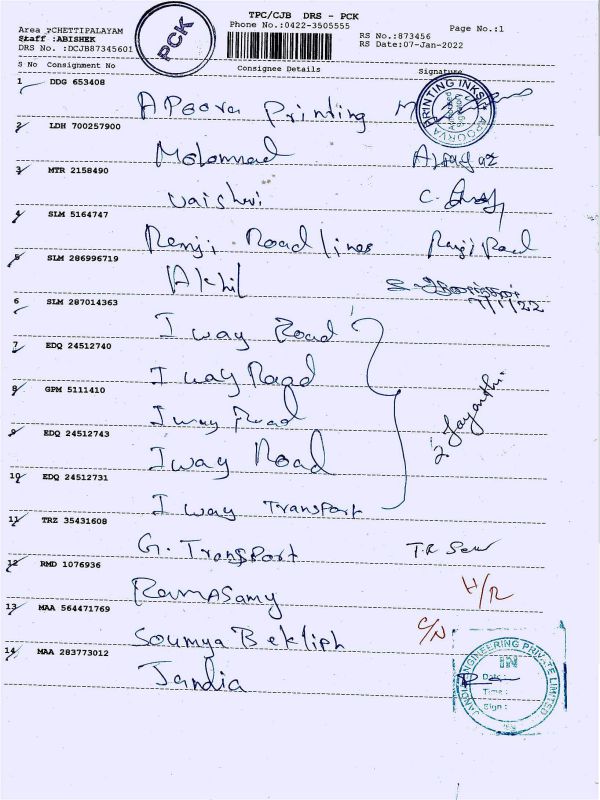 TPC/CJB DRS - PCK
Phone No.:0422-3505555
Page No.:1
Area :CHETTIPALAYAM
Staff :ABISHEK
DRS No. :DCJB87345601
PCK
RS No.:873456
RS Date:07-Jan-2022
S No Consignment No Consignee Details Signature
1 DDG 653408
Apoorva Printing
APOORVA PRINTING INKS
2 LDH 700257900
Mohammad
3 MTR 2158490
Vaishnvi
4 SLM 5164747
Remji Roadlines
5 SLM 286996719
Akhil
7/1/22
6 SLM 287014363
I way Road
7 EDQ 24512740
I way Road
8 GPM 5111410
I way Road
9 EDQ 24512743
I way Road
Jayanthi
10 EDQ 24512731
I way Transport
11 TRZ 35431608
G. Transport
12 RMD 1076936
Ramasamy H/R
13 MAA 564471769
Soumya C/N
14 MAA 283773012
Jandia
ENGINEERING PRIVATE LIMITED
IN
Date :
Time :
Sign :